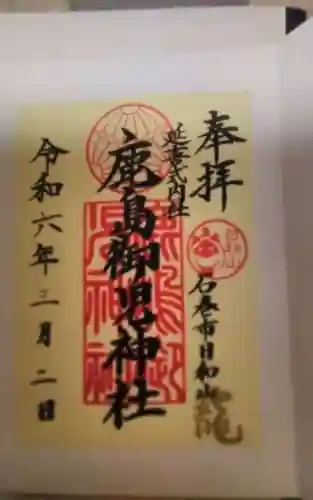 奉拝
延喜式内社
石巻市日和山
鹿島御児神社
令和六年三月二日